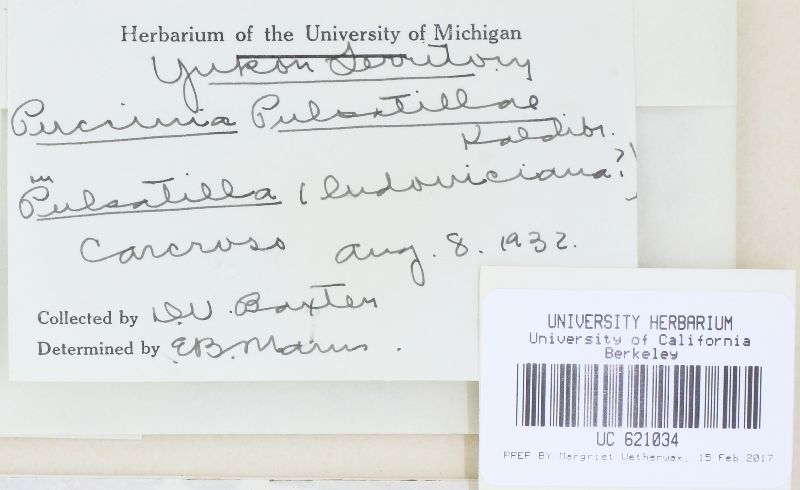 Herbarium of the University of Michigan
Yukon Territory
Puccinia Pulsatillae
Kalchbr.
on
Pulsatilla (ludoviciana?)
Carcross Aug. 8. 1932.
Collected by D.V. Baxter
Determined by E.B. Mains.
UNIVERSITY HERBARIUM
University of California
Berkeley
UC 621034
PREP BY Margriet Wetherwax, 15 Feb 2017